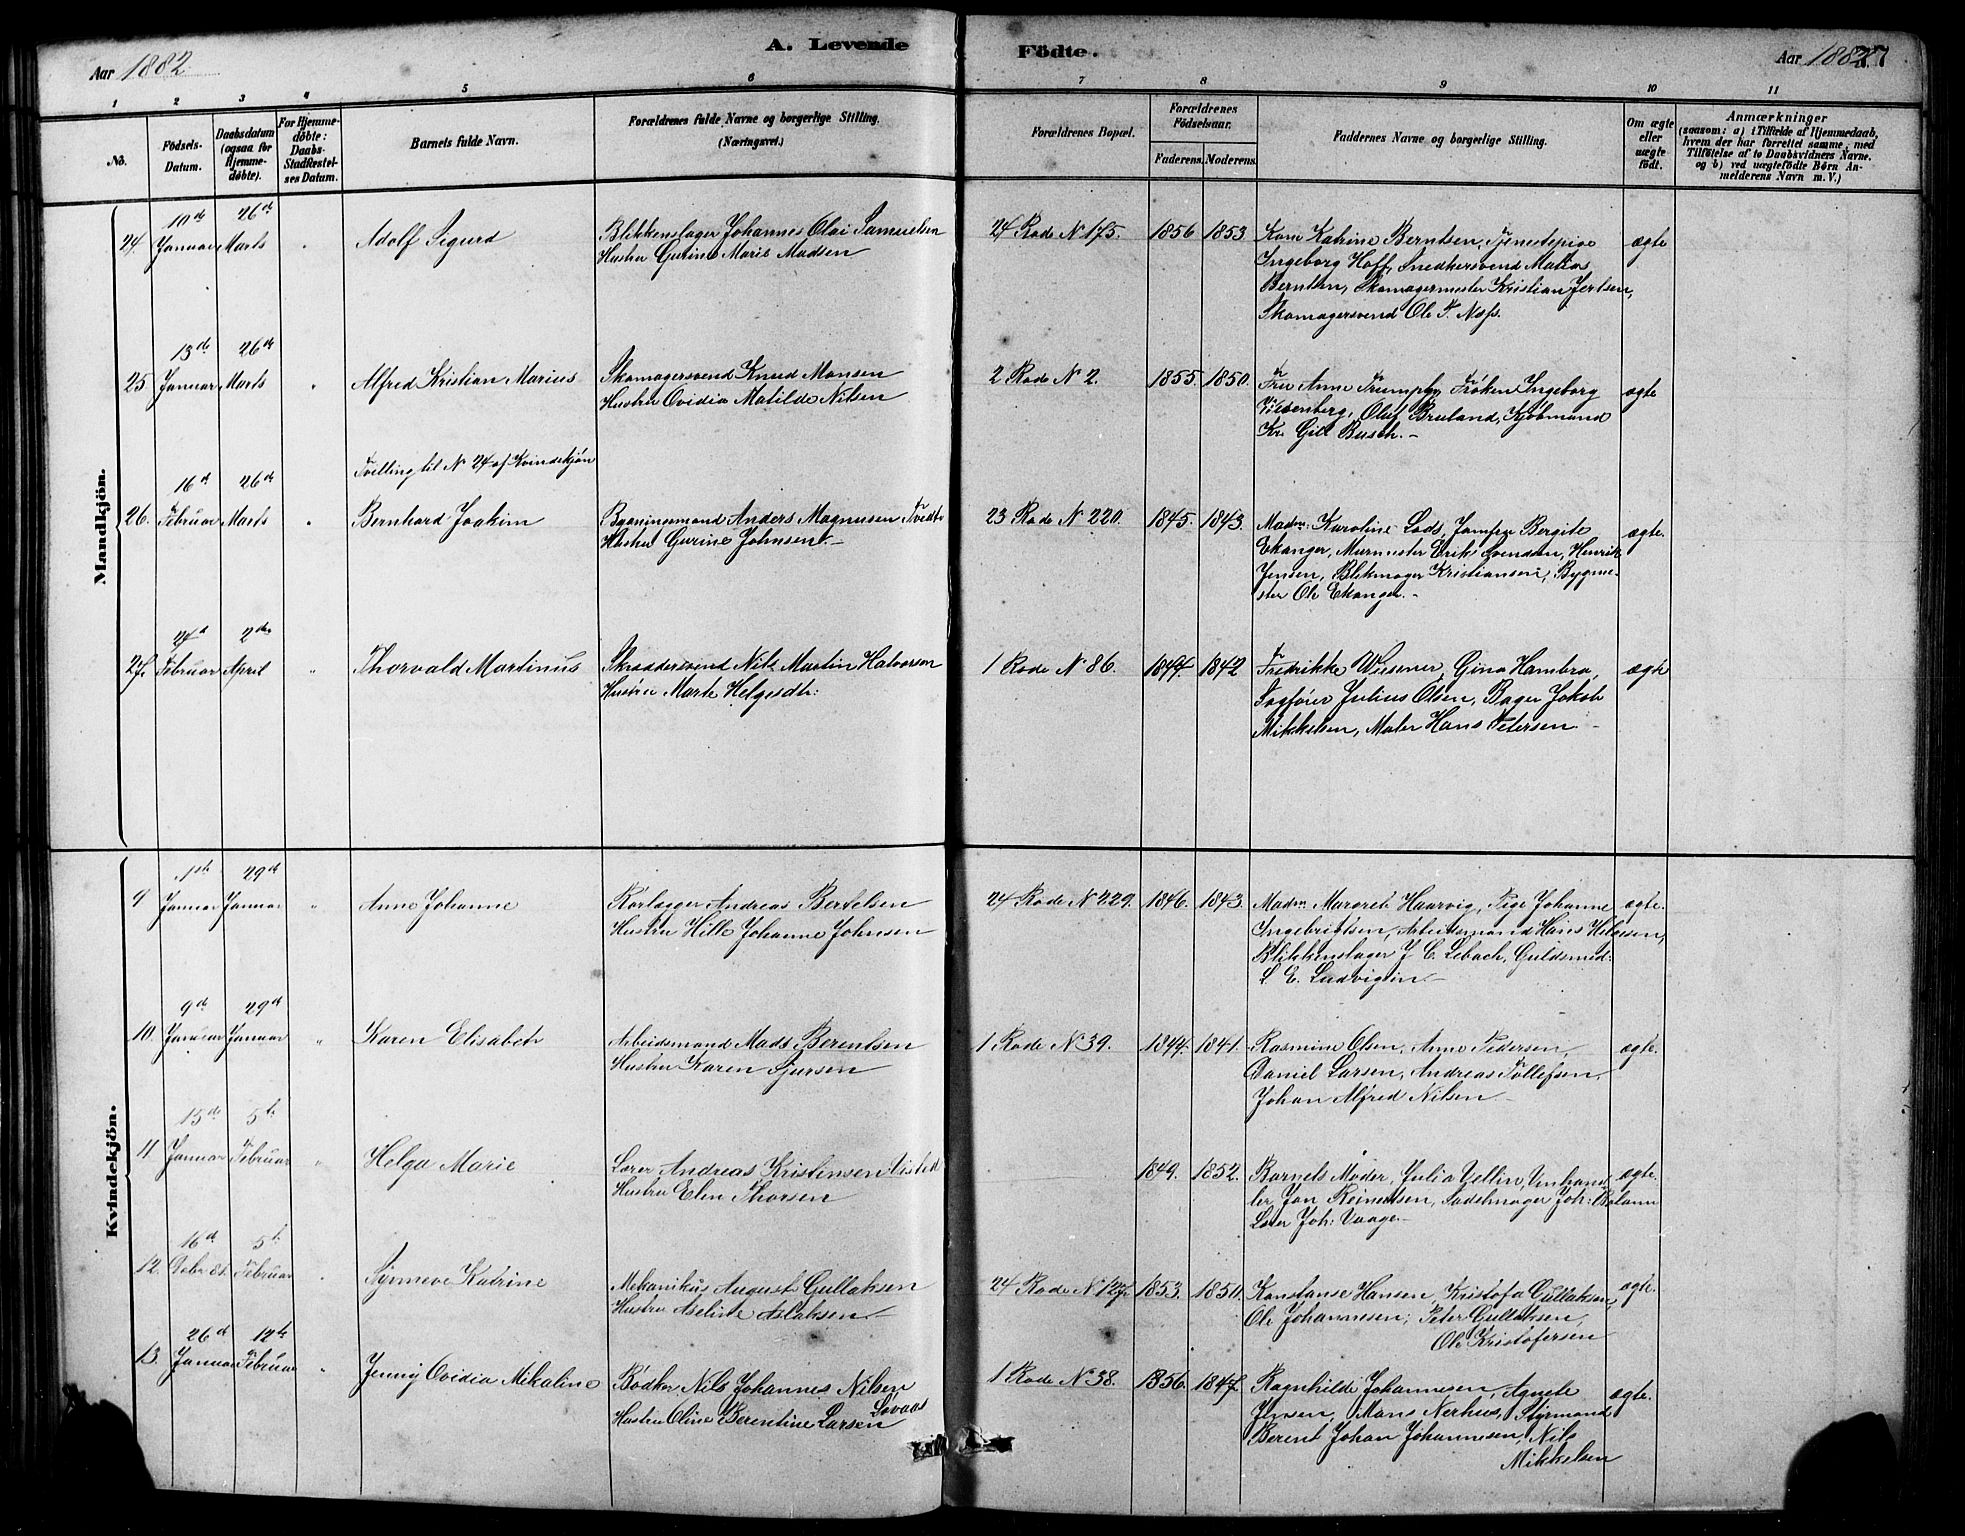 Aar 1882
A. Levende
Födte.
Aar 1882
77
1 2 3 4 5 6 7 8 9 10 11
No.
Födsels-Datum.
Daabsdatum (ogsaa for Hjemme-döbte).
For Hjemme-döbte: Daabs-Stadfæstel-ses Datum.
Barnets fulde Navn.
Forældrenes fulde Navne og borgerlige Stilling.
(Næringsvei.)
Forældrenes Bopæl.
Forældrenes Födselsaar.
Faderens. Moderens.
Faddernes Navne og borgerlige Stilling.
Om ægte eller uægte födt.
Anmærkninger
(saasom: a) i Tilfælde af Hjemmedaab,
hvem der har forrettet samme, med
Tilföielse af to Daabsvidners Navne.
og b) ved uægtefödte Börn An-
melderens Navn m. V.)
Mandkjön.
24. 10de Januar 26de Marts " Adolf Sigurd
Blikkenslager Johannes Olai Samuelsen
Hustru Gurine Marie Madsen
24 Rode N 175. 1856 1853
Kone Katrine Berntsen, Tjenestepige
Ingeborg Hoff, Snedkersvend Matias
Berntsen, Skomagermester Kristian Jertsen,
Skomagersvend Ole T. Næss.
ægte
25 13de Januar 26de Marts " Alfred Kristian Marius
Skomagersvend Knud Monsen
Hustru Ovidia Matilde Nilsen
2 Rode N 2. 1855. 1850.
Fru Anne Trumphy, Frøken Ingeborg
Wesenberg, Oluf Bruland, Kjøbmand
Kr. Gill Busch.-
ægte
Tvilling til N 24 af Kvindekjøn
26. 16d Februar 26de Marts " Bernhard Joakim
Bygningsmand Anders Magnusen Tvedt
Hustru Gurine Johnsen.-
23 Rode N 220. 1845. 1843.
Madm: Karoline Lads, Jomfru Bergite
Ekanger, Murmester Erik Svendsen, Henrik
Jensen, Blikmager Kristiansen, Bygme-
ster Ole Ekanger.-
ægte.
27. 24d Februar 2den April " Thorvald Martinus
Skræddersvend Nils Martin Halvorsen
Hustru Marte Helgesdtr:
1 Rode N 86. 1844. 1842
Fredrikke Wiesener, Gina Hambro,
Sagfører Julius Olsen, Bager Jakob
Mikkelsen, Maler Hans Petersen.-
ægte
Kvindekjön.
9 1ste Januar 29d Januar " Anne Johanne
Rørlægger Andreas Bertelsen
Hustru Hille Johanne Johnsen
24 Rode N 229. 1846. 1843.
Madm Margrete Haarvig, Pige Johanne
Ingebrigtsen, Arbeidsmand Hans Helgesen,
Blikkenslager J C. Lebach, Guldsmed:
L E. Ludvigsen.-
ægte.
10. 9de Januar 29d Januar " Karen Elisabet
Arbeidsmand Mads Berentsen
Hustru Karen Sjursen
1 Rode N 39. 1844. 1841.
Rasmine Olsen, Anne Pedersen,
Daniel Larsen, Andreas Tollefsen,
Johan Alfred Nilsen.-
ægte.
11 15de Januar 5te Februar " Helga Marie
Lærer Andreas Kristensen Listed
Hustru Elen Thorsen
1849. 1852.
Barnets Moder, Julia Vellin, Vinhand
ler Jan Reinertsen, Sadelmager Joh: Bolann
Lærer Joh: Vaage.-
ægte.
12. 16d 5te Februar " Synneve Katrine
Mekanikus August Gullaksen
Hustru Aseline Aslaksen.-
24 Rode N 127. 1853. 1850.
Konstanse Hansen, Kristofa Gullaksen,
Ole Johannesen, Peter Gullaksen,
Ole Kristofersen
ægte.
13. 26d Januar 12te Februar " Jenny Ovidia Mikaline
Bødker Nils Johannes Nilsen
Løvaas
Hustru Oline Berentine Larsen
1 Rode N 38. 1856. 1847.
Ragnhilde Johannesen, Agnete
Jensen, Mons Nerhus, Styrmand
Berent Johan Johannesen, Nils
Mikkelsen
ægte.